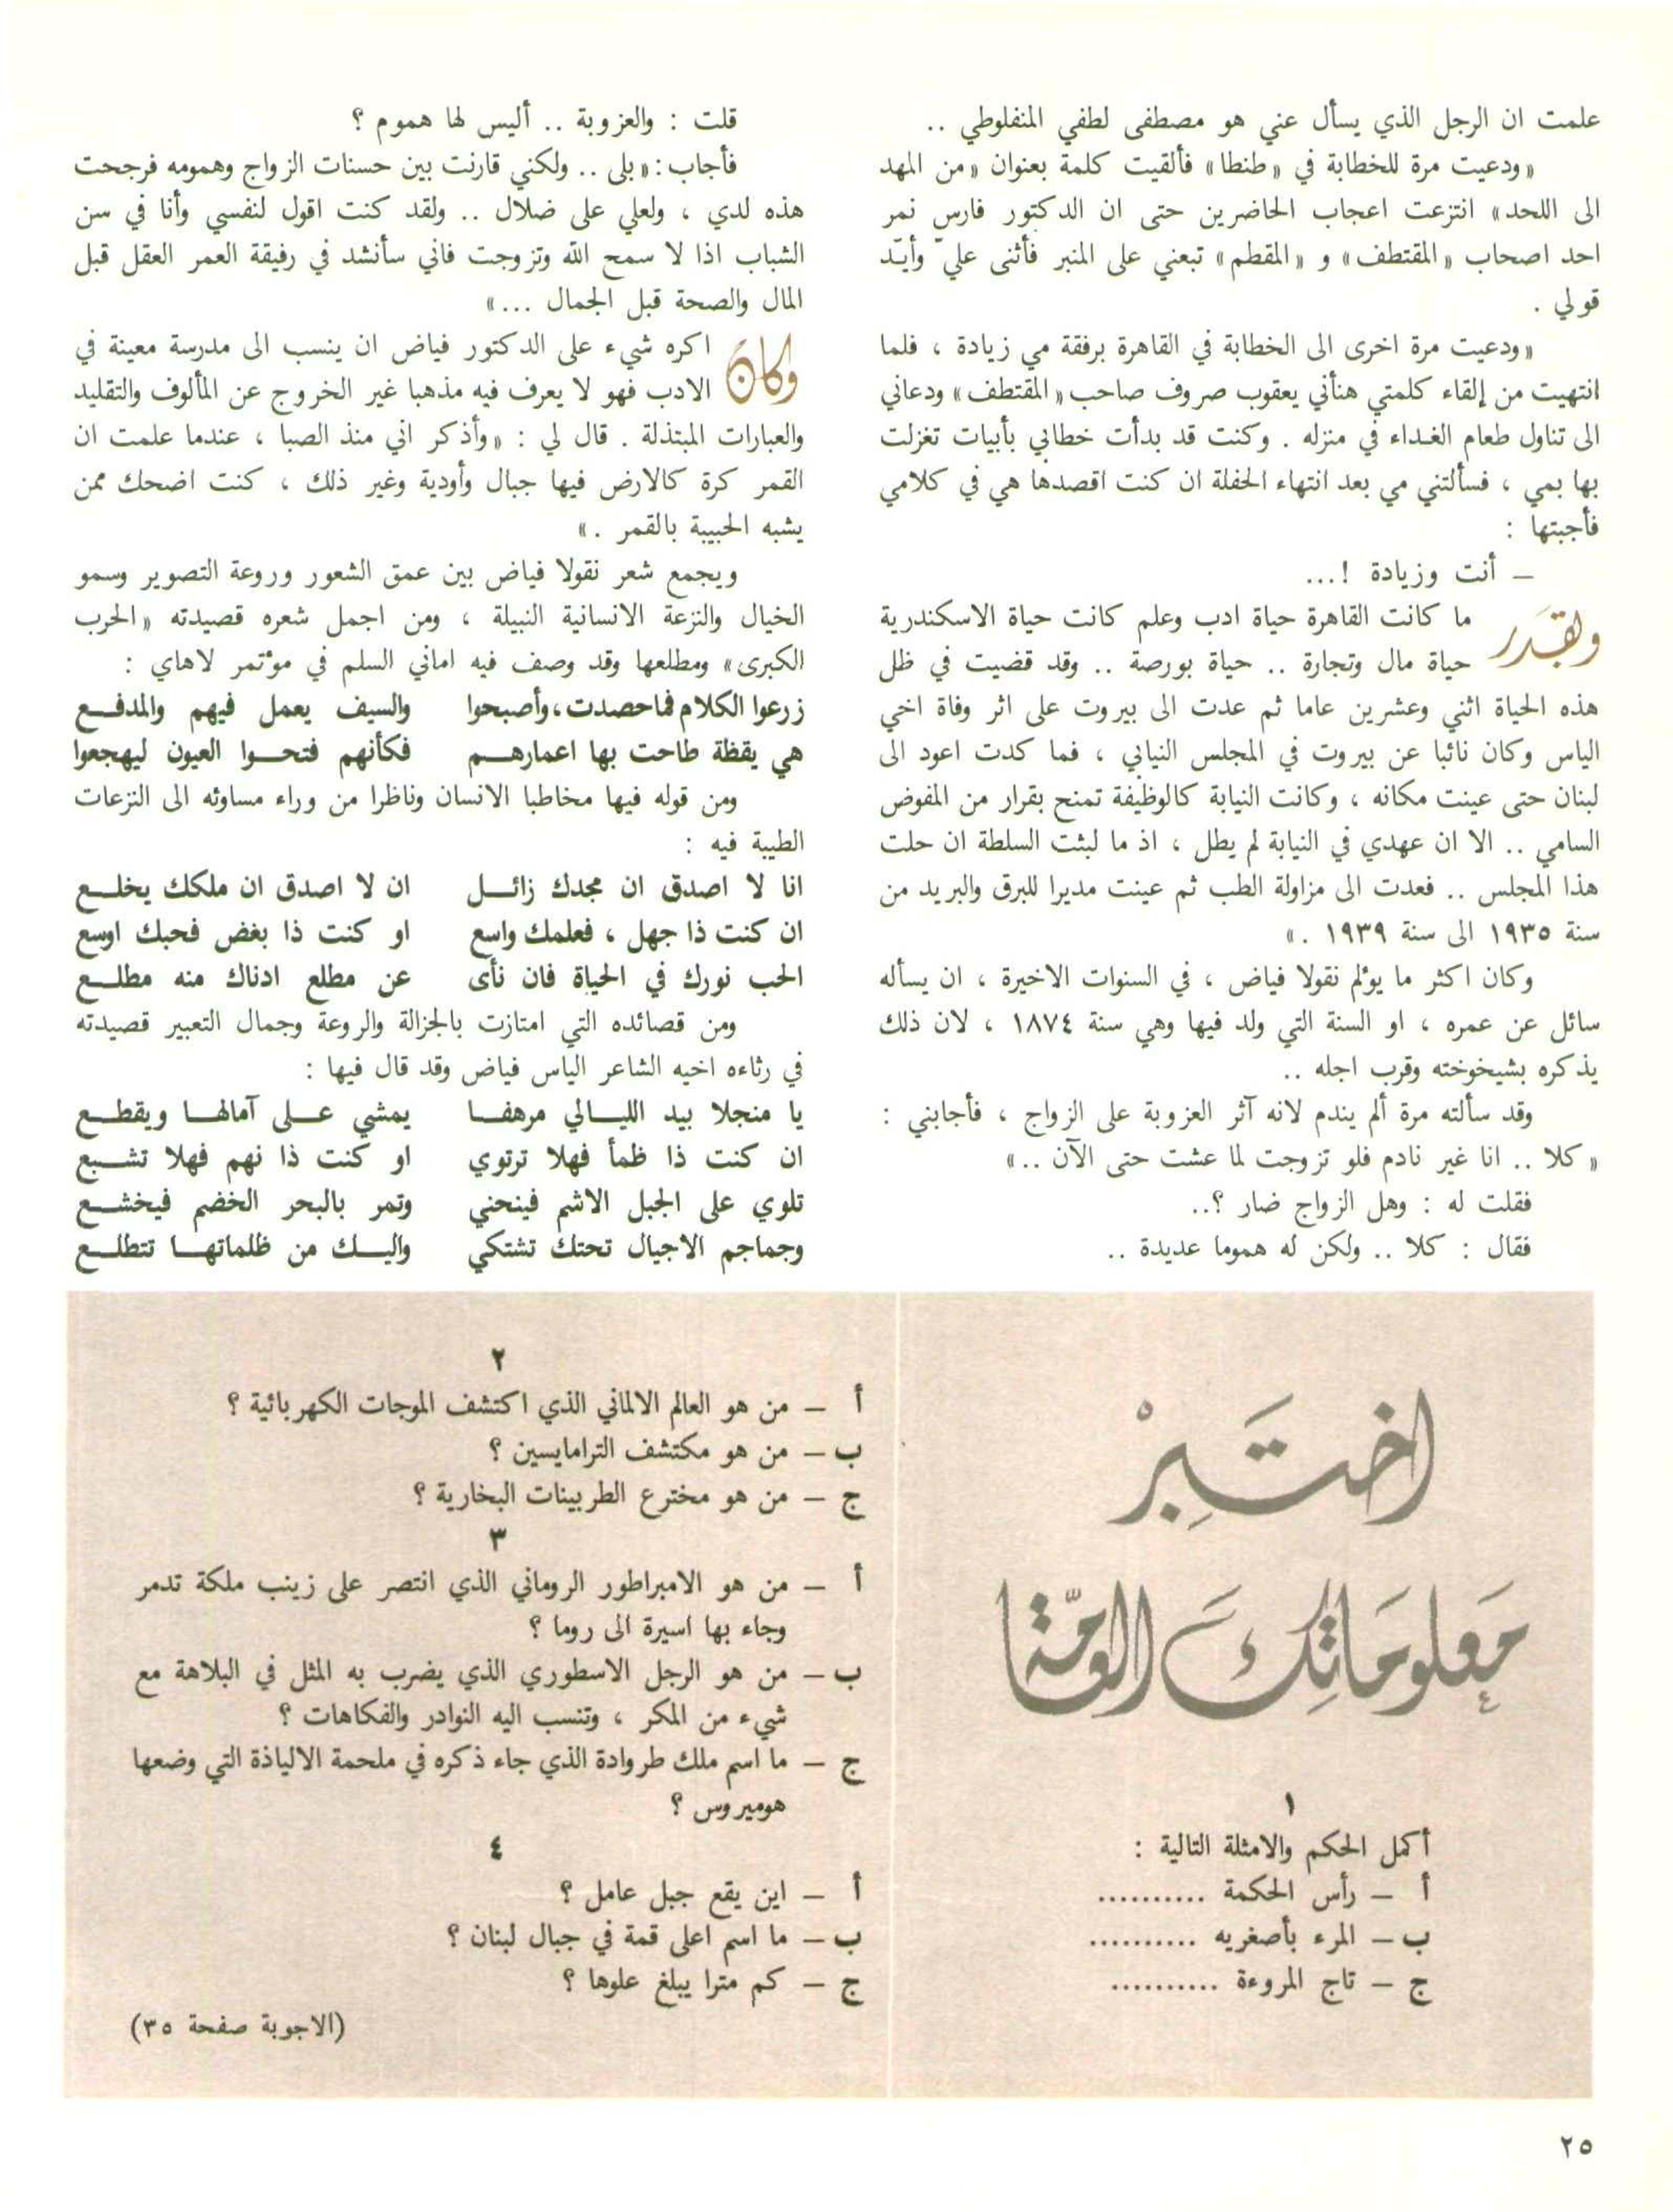 علمت ان الرجل الذي يسأل عني هو مصطفى لطفي المنفلوطي ..
«ودعيت مرة للخطابة في «طنطا» فألقيت كلمة بعنوان «من المهد
الى اللحد» انتزعت اعجاب الحاضرين حتى ان الدكتور فارس نمر
احد اصحاب «المقتطف» و «المقطم» تبعني على المنبر فأثنى عليّ وأيّد
قولي .
«ودعيت مرة اخرى الى الخطابة في القاهرة برفقة مي زيادة ، فلما
انتهيت من إلقاء كلمتي هنأني يعقوب صروف صاحب «المقتطف» ودعاني
الى تناول طعام الغداء في منزله . وكنت قد بدأت خطابي بأبيات تغزلت
بها بمي ، فسألتني مي بعد انتهاء الحفلة ان كنت اقصدها هي في كلامي
فأجبتها :
— أنت وزيادة !...
ولقدر ما كانت القاهرة حياة ادب وعلم كانت حياة الاسكندرية
حياة مال وتجارة .. حياة بورصة .. وقد قضيت في ظل
هذه الحياة اثني وعشرين عاما ثم عدت الى بيروت على اثر وفاة اخي
الياس وكان نائبا عن بيروت في المجلس النيابي ، فما كدت اعود الى
لبنان حتى عينت مكانه ، وكانت النيابة كالوظيفة تمنح بقرار من المفوض
السامي .. الا ان عهدي في النيابة لم يطل ، اذ ما لبثت السلطة ان حلت
هذا المجلس .. فعدت الى مزاولة الطب ثم عينت مديرا للبرق والبريد من
سنة ١٩٣٥ الى سنة ١٩٣٩ .»
وكان اكثر ما يؤلم نقولا فياض ، في السنوات الاخيرة ، ان يسأله
سائل عن عمره ، او السنة التي ولد فيها وهي سنة ١٨٧٤ ، لان ذلك
يذكره بشيخوخته وقرب اجله ..
وقد سألته مرة ألم يندم لانه آثر العزوبة على الزواج ، فأجابني :
«كلا .. انا غير نادم فلو تزوجت لما عشت حتى الآن ..»
فقلت له : وهل الزواج ضار ؟..
فقال : كلا .. ولكن له هموما عديدة ..
قلت : والعزوبة .. أليس لها هموم ؟
فأجاب : «بلى .. ولكني قارنت بين حسنات الزواج وهمومه فرجحت
هذه لدي ، ولعلي على ضلال .. ولقد كنت اقول لنفسي وأنا في سن
الشباب اذا لا سمح الله وتزوجت فاني سأنشد في رفيقة العمر العقل قبل
المال والصحة قبل الجمال ...»
وكان اكره شيء على الدكتور فياض ان ينسب الى مدرسة معينة في
الادب فهو لا يعرف فيه مذهبا غير الخروج عن المألوف والتقليد
والعبارات المبتذلة . قال لي : «وأذكر اني منذ الصبا ، عندما علمت ان
القمر كرة كالارض فيها جبال وأودية وغير ذلك ، كنت اضحك ممن
يشبه الحبيبة بالقمر .»
ويجمع شعر نقولا فياض بين عمق الشعور وروعة التصوير وسمو
الخيال والنزعة الانسانية النبيلة ، ومن اجمل شعره قصيدته «الحرب
الكبرى» ومطلعها وقد وصف فيه اماني السلم في مؤتمر لاهاي :
زرعوا الكلام فما حصدت ، وأصبحوا والسيف يعمل فيهم والمدفــع
هي يقظة طاحت بها اعمارهــم فكأنهم فتحــوا العيون ليهجعوا
ومن قوله فيها مخاطبا الانسان وناظرا من وراء مساوئه الى النزعات
الطيبة فيه :
انا لا اصدق ان مجدك زائــل ان لا اصدق ان ملكك يخلــع
ان كنت ذا جهل ، فعلمك واسع او كنت ذا بغض فحبك اوسع
الحب نورك في الحياة فان نأى عن مطلع ادناك منه مطلــع
ومن قصائده التي امتازت بالجزالة والروعة وجمال التعبير قصيدته
في رثاءه اخيه الشاعر الياس فياض وقد قال فيها :
يا منجلا بيد الليــالي مرهفــا يمشي عــلى آمالهــا ويقطــع
ان كنت ذا ظمأ فهلا ترتوي او كنت ذا نهم فهلا تشــبع
تلوي على الجبل الاشم فينحني وتمر بالبحر الخضم فيخشــع
وجماجم الاجيال تحتك تشتكي واليــك من ظلماتهــا تتطلــع
اختَبِرْ
مَعلومَاتِكَ العَامّة
١
أكمل الحكم والامثلة التالية :
أ — رأس الحكمة ..........
ب — المرء بأصغريه ..........
ج — تاج المروءة ..........
٢
أ — من هو العالم الالماني الذي اكتشف الموجات الكهربائية ؟
ب — من هو مكتشف الترامايسين ؟
ج — من هو مخترع الطربينات البخارية ؟
٣
أ — من هو الامبراطور الروماني الذي انتصر على زينب ملكة تدمر
وجاء بها اسيرة الى روما ؟
ب — من هو الرجل الاسطوري الذي يضرب به المثل في البلاهة مع
شيء من المكر ، وتنسب اليه النوادر والفكاهات ؟
ج — ما اسم ملك طروادة الذي جاء ذكره في ملحمة الالياذة التي وضعها
هوميروس ؟
٤
أ — اين يقع جبل عامل ؟
ب — ما اسم اعلى قمة في جبال لبنان ؟
ج — كم مترا يبلغ علوها ؟
(الاجوبة صفحة ٣٥)
٢٥